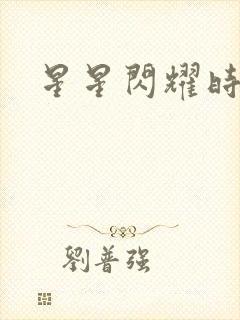 星星閃耀時
劉普强